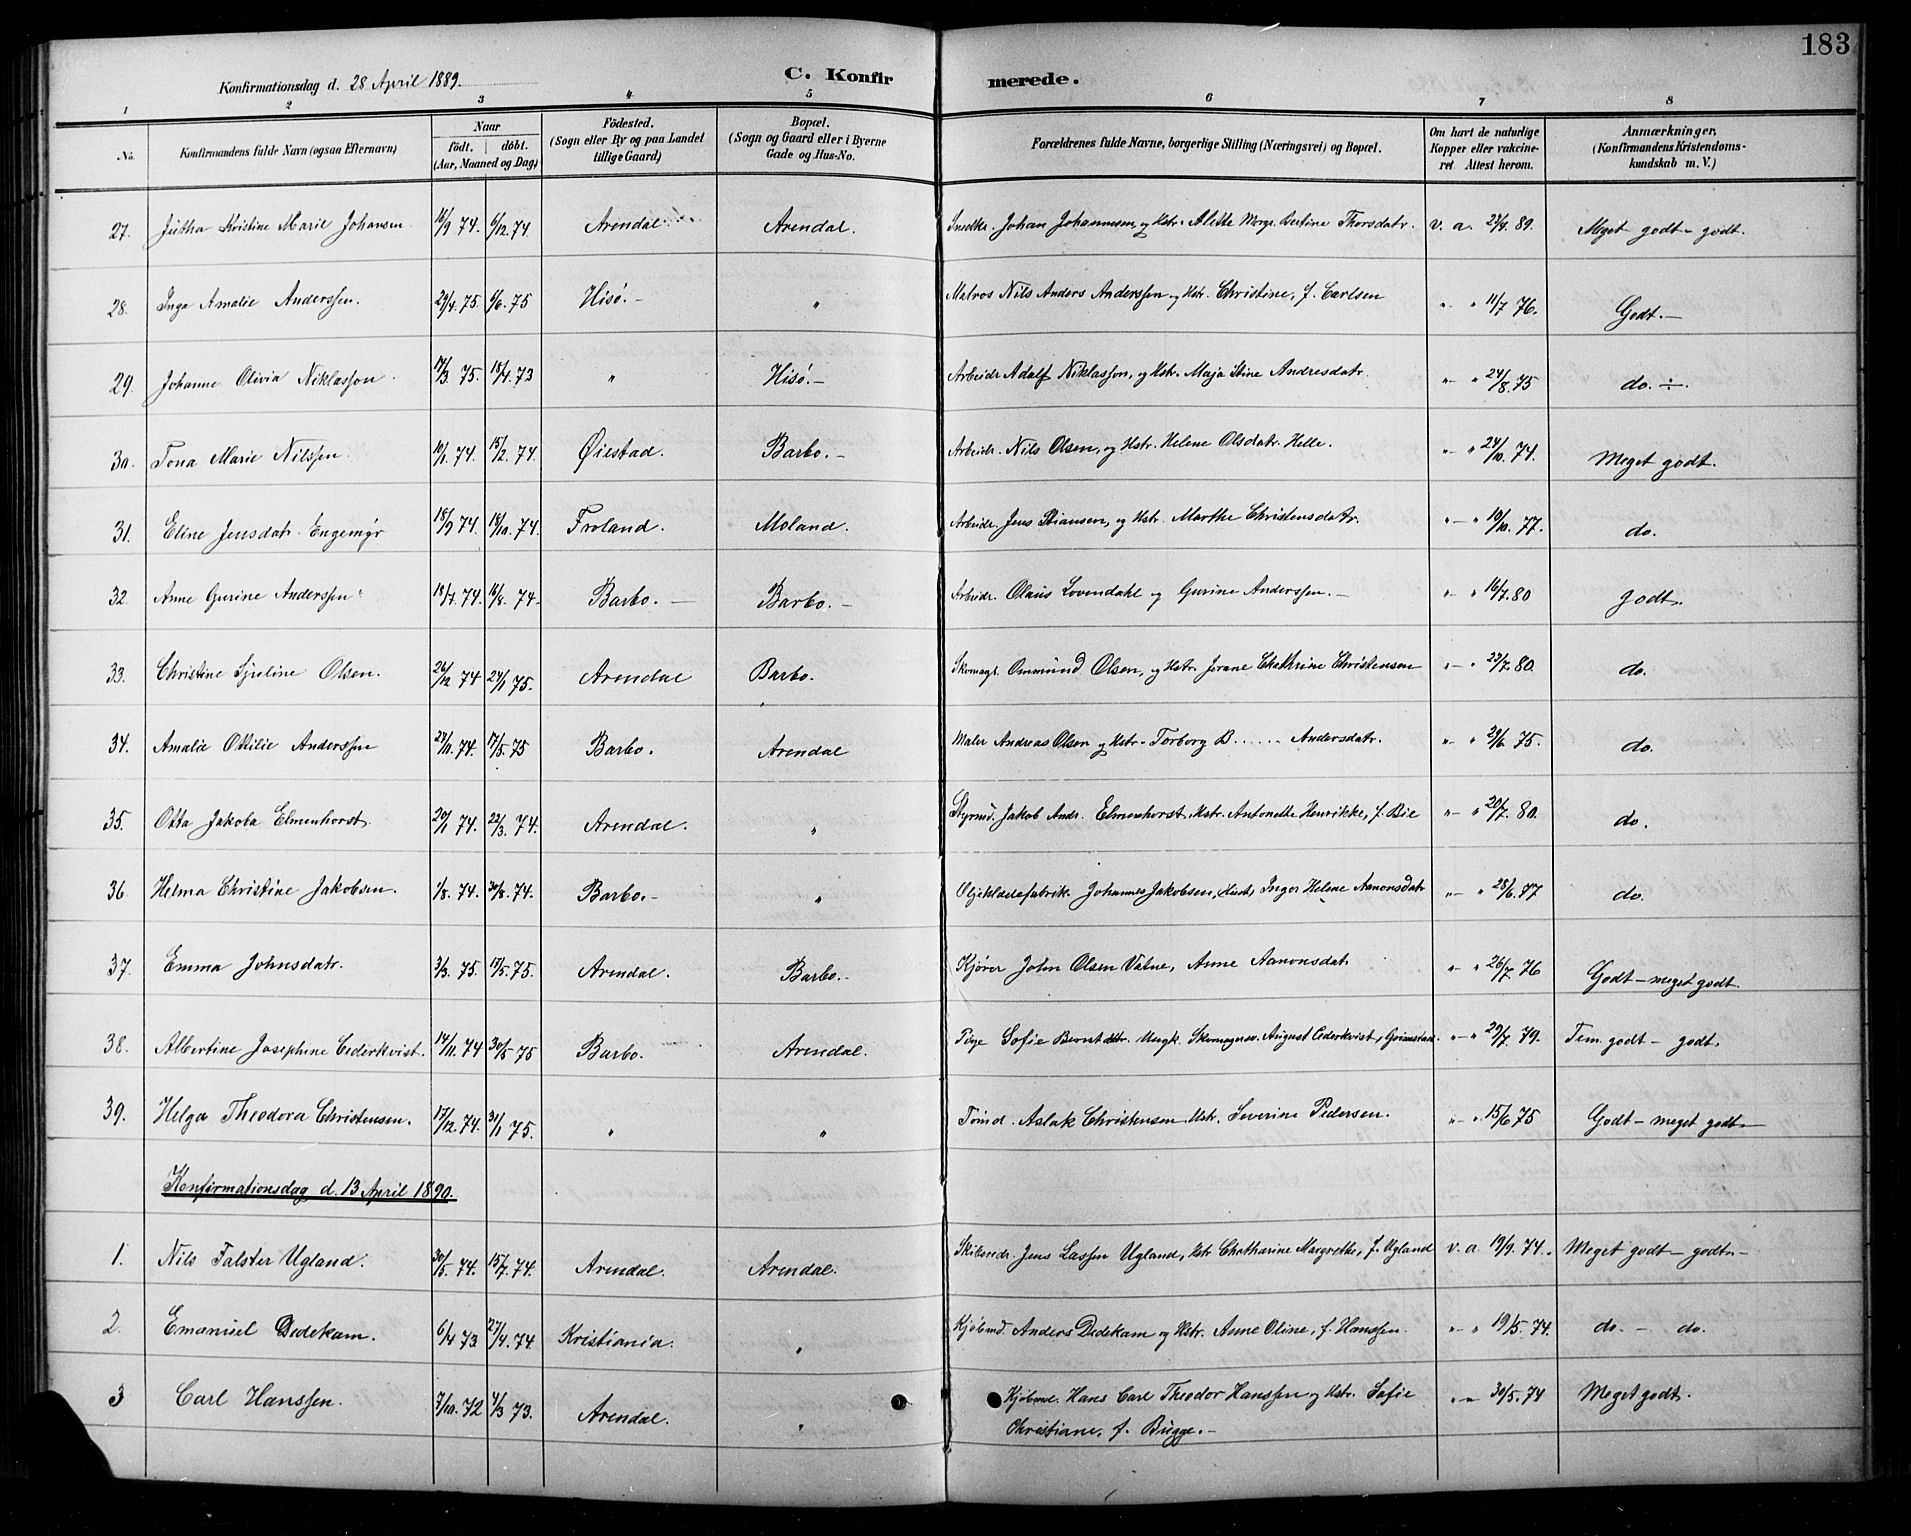 183
Konfirmationsdag d. 28 April 1889.
C. Konfirmerede.
1 2 3 4 5 6 7 8
No. Konfirmandens fulde Navn (ogsaa Efternavn) Naar født. døbt. (Aar, Maaned og Dag) Födested. (Sogn eller By og paa Landet tillige Gaard) Bopæl. (Sogn og Gaard eller i Byerne Gade og Hus-No. Forældrenes fulde Navne, borgerlige Stilling (Næringsvei) og Bopæl. Om havt de naturlige Kopper eller vakcineret Attest herom. Anmærkninger. (Konfirmandens Kristendomskundskab m. V.)
27. Jutha Kristine Marie Johansen 16/9 74. 6/12 74 Arendal Arendal. Johan Johannesen, og Hstr. Alette Marge. Bertine Thorsdatr. v. a. 23/4 89. Meget godt - godt.
28. Inga Amalie Anderssen. 29/4 75. 6/6. 75 Hisö. - " Matros Nils Anders Anderssen og Hstr. Christine, f. Carlsen " - " 11/7 76. Godt. -
29. Johanne Olivia Niklasson. 17/3 75. 18/4 73 " Hisö. - Arbeidr Adolf Niklasson, og Hstr. Maja Stine Andresdatr. " - " 24/8. 75 do. ÷.
30. Tona Marie Nilssen 10/1 74. 15/2. 74. Øiestad. Barbo. - Arbeidr. Nils Olsen, og Hstr. Helene Olsdatr. Helle. " - " 24/10. 74. Meget godt.
31. Eline Jensdatr. Engemyr 18/9 74. 18/10. 74. Froland. Moland. Arbeidr. Jens Stiansen, og Hstr. Marthe Christensdatr. " - " 10/10. 77. do.
32. Anne Gurine Anderssen 18/7. 74. 16/8. 74. Barbo. - Barbo. - Arbeidr. Olaus Lovendahl og Gurine Anderssen. - " - " 16/7. 80 godt.
33. Christine Sjuline Olsen. 26/12 74 24/1 75. Arendal Barbo. Skomagr. Ommund Olsen, og Hstr. Jorane Chathrine Christensen " - " 23/7. 80. do.
34. Amalie Ottilie Anderssen 27/11. 74. 17/5. 75 Barbo. Arendal Maler Andreas Olsen og Hstr. Torborg B...... Andersdatr. " - " 29/6 75. do.
35. Otta Jakoba Elmenhorst 20/1 74. 22/3. 74. Arendal. " Styrmd. Jakob Andr. Elmenhorst, Hstr. Antonette Henrikke, f. Bie " - " 20/7. 80. do.
36. Helma Christine Jakobsen. 1/8. 74. 30/8. 74. Barbo. - " Oljeklædefabrik. Johannes Jakobsen, Hust, Inger Helene Aanonsdatr " - " 28/6. 77 do.
37. Emma Johnsdatr. 3/3. 75. 17/5. 75. Arendal. Barbo. - Kjører John Olsen Vatne, Anne Aanonsdat. " - " 26/7. 76 Godt - meget godt.
38. Albertine Josephine Cederkvist. 14/11. 74 30/5 75 Barbo. Arendal. Pige Sofie Berntsdtr. Ungk. Skomagersv. August Cederkvist, Grimstad. " - " 29/7. 79. Tem. godt - godt.
39. Helga Theodora Christensen. 17/12. 74. 31/1 75. " " Tømd. Aslak Christensen. Hstr. Severine Pedersen. " - " 15/6 75 Godt - meget godt -
Konfirmationsdag d. 13 April 1890.
1. Nils Falster Ugland. 30/5. 74. 15/7. 74. Arendal. Arendal. Skibsredr. Jens Lassen Ugland, Hstr. Chatharine Margrethe, f. Ugland v. a 19/9. 74. Meget godt - godt. -
2. Emanuel Dedekam. 6/4 73. 27/4. 74. Kristiania. " Kjøbmd. Anders Dedekam og Hstr. Anne Oline, f. Hanssen. " - " 19/5. 74. do. - do.
3 Carl Hanssen. 7/10. 72 4/3 73. Arendal. " Kjøbmd. Hans Carl Theodor Hanssen og Hstr. Sofie " " 30/5. 74 Meget godt.
Christiane, f. Bugge. -